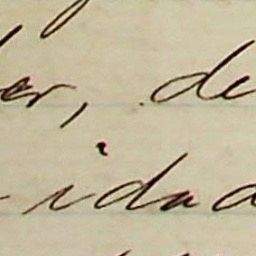 er, de
idad